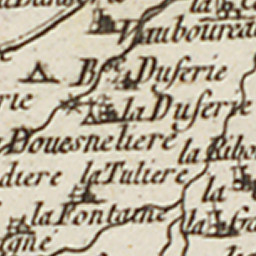 Vauboureau
B. Duserie
rie
la Duserie
Douesneliere
la Ribo
la Tuliere
diere
la
la Fontaine
la Ga
gne